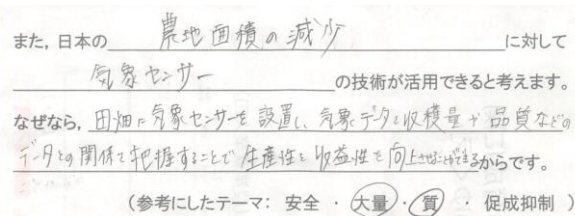 また，日本の 農地面積の減少 に対して
気象センサー の技術が活用できると考えます。
なぜなら，田畑に気象センサーを設置し、気象データと収穫量や品質などの
データとの関係を把握することで生産性と収益性を向上させることができるからです。
（参考にしたテーマ： 安全 ・ 大量 ・ 質 ・ 促成抑制 ）